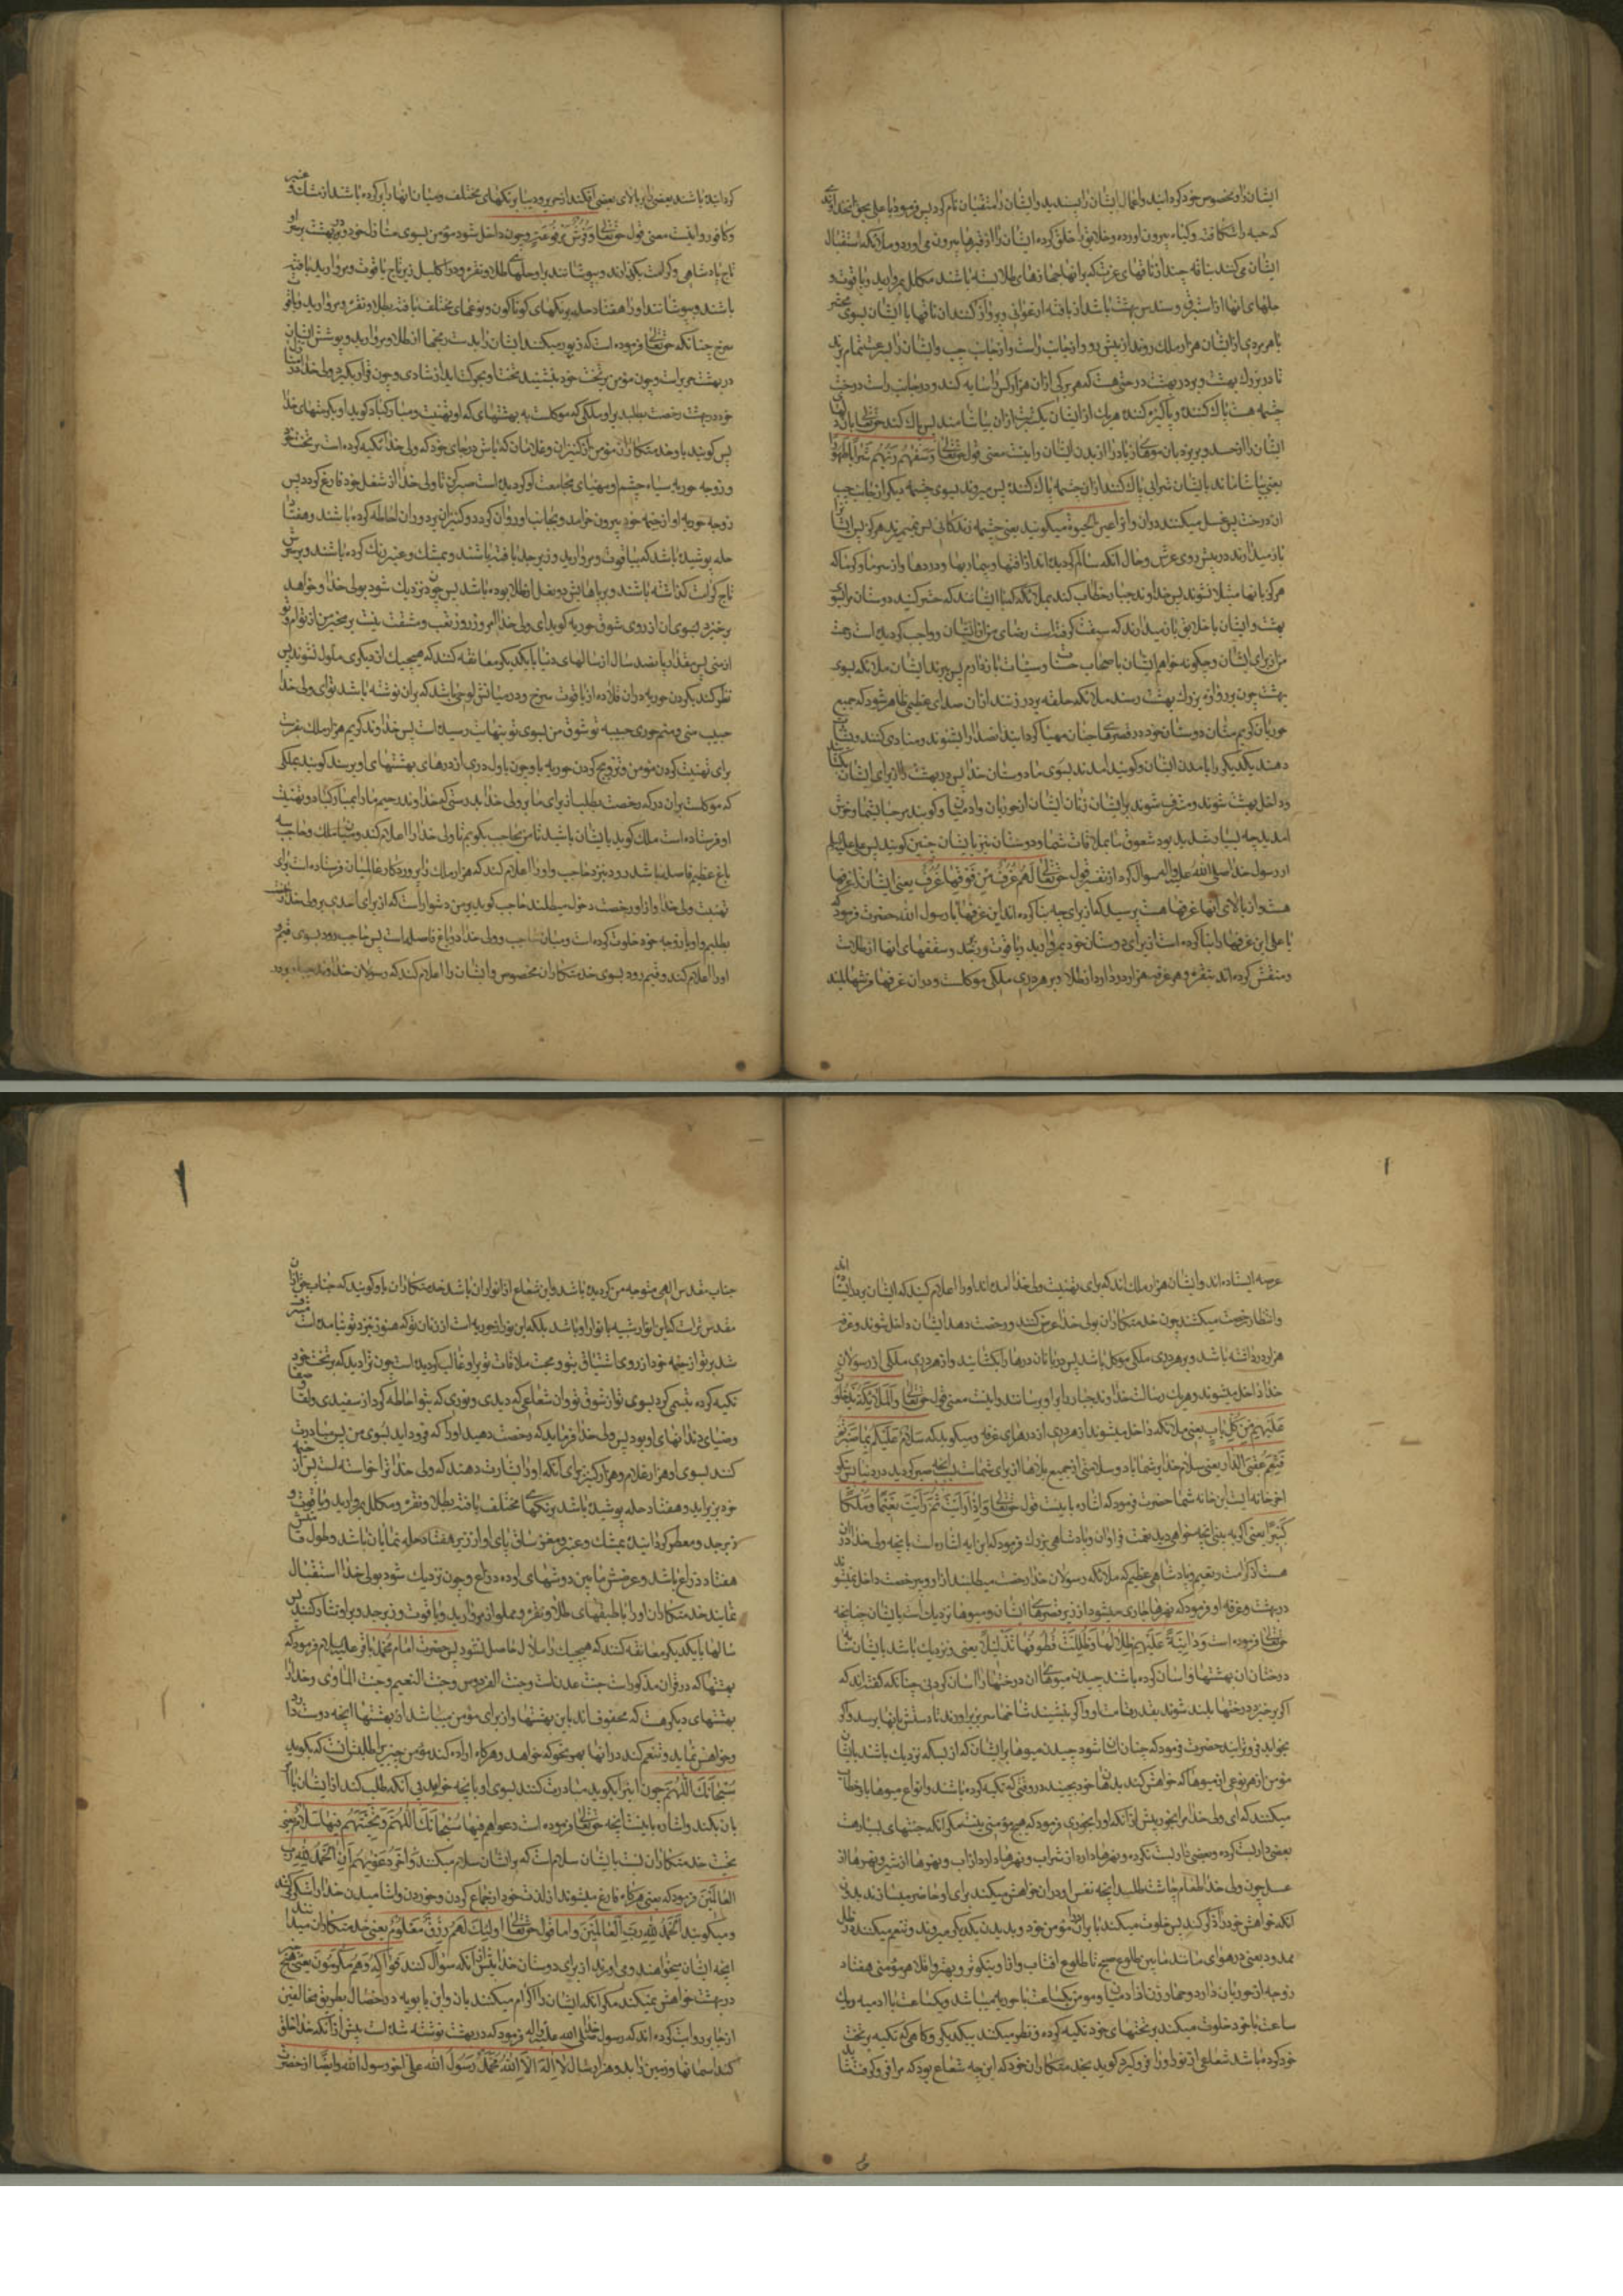 ایشان را و مخصوص خود کرداینده و اعمال ایشان را پسندیده و ایشان را متقیان نام کرد پس فرمود یا علی بحق انخداوندی
که حبه را شکافته و کیاه بیرون اورده و خلایق را خلق کرده ایشان را از قبرها بیرون می اورد و ملائکه استقبال
ایشان می کنند بناقه چند از ناقهای عزت که بر انها جهازهای طلا بسته باشند مکلل بمروارید و یاقوت و
جلهای انها از استبرق و سندس بهشت باشد از بافته ارغوانی و پرواز کنند ان ناقها با ایشان بسوی محشر
با هر مردی از ایشان هزار ملک روند از پیش رو و از جانب راست و از جانب چپ و ایشان را بسرعت تمام برند
تا در بزرک بهشت و بر در بهشت درختی هست که هر برکی از ان هزار کس را سایه کند و در جانب راست درخت
چشمه هست پاک کننده و پاکیزه کننده هر یک از ایشان یکشربت از ان بیاشامند پس پاک کند حق تعالی بان دلهای
ایشان را از حسد و بریزد بان مویهای زیاد را از بدن ایشان و اینست معنی قول حق تعالی وَسَقٰیهُم رَبُّهُم شَرابًا طَهُورًا
یعنی بیاشاماند بایشان شرابی پاک کننده از ان چشمه پاک کننده پس میروند بسوی چشمه دیکر از جانب چپ
ان درخت پس غسل میکنند در ان و انرا عین الحیوة میکویند یعنی چشمه زندکانی پس نمیمیرند هرکز پس ایشان را
باز میدارند در پیش روی عرش و حال انکه سالم کردیده اند از افتها و بیماریها و دردها و از سرما و کرما که
هرکز بانها مبتلا نشوند پس خداوند جبار خطاب کند بملائکه که با ایشانند که حشر کنید دوستان مرا بسوی
بهشت و ایشان را با خلایق باز مدارید که سبقت کرفته است رضای من از ایشان و واجب کردیده است رحمت
من از برای ایشان و چکونه خواهم ایشان را با صحاب حسنات و سیئات باز دارم پس ببرند ایشان را ملائکه بسوی
بهشت چون بر دروازه بزرک بهشت رسند ملائکه حلقه بر در زنند از ان صدای عظیمی ظاهر شود که جمیع
حوریان که بجهت دوستان خود در قصرهای جنان مهیا کرداینده صدا را بشنوند و منادی کنند و بشارت
دهند یکدیکر را بامدن ایشان و کویند امدند بسوی ما دوستان خدا پس در بهشت را از برای ایشان بکشایند
و داخل بهشت شوند و مشرف شوند بر ایشان زنان ایشان از حوریان و ادمیان و کویند مرحبا بشما و خوش
امدید چه بسیار شدید بود شوق ما بملاقات شما و دوستان نیز با ایشان چنین کویند پس علی علیه السلم
از رسول خدا صلی الله علیه واله سوال کرد از تفسیر قول حق تعالی لَهُم غُرَفٌ مِن فَوقِها غُرَفٌ یعنی ایشان را غرفها
هست و از بالای انها غرفها هست پرسید که از برای چه بنا کرده اند این غرفها یا رسول الله حضرت فرمود که
یا علی این غرفها را بنا کرده است از برای دوستان خود بمروارید و یاقوت و زبرجد و سقفهای انها از طلاست
و منقش کرده اند بنقره و هر غرفه هزار در دارد از طلا و بر هر دری ملکی موکلست و در ان غرفها فرشهای بلند
کرداینده باشند بعضی را بر بالای بعضی افکنند از حریر و دیبا برنکهای مختلف و میان انها را پر کرده باشند از مشک و عنبر
و کافور و اینست معنی قول حق تعالی وَ فُرُشٍ مَرفُوعَةٍ و چون داخل شود مؤمن بسوی منازل خود در بهشت بر سر او
تاج پادشاهی و کرامت بکذارند و بپوشانند بر او حلهای طلا و نقره و در اکلیل زیر تاج یاقوت و مروارید بافته
باشند و بپوشانند او را هفتاد حله برنکهای کوناکون و نوعهای مختلف بافته بطلا و نقره و مروارید و یاقوت
سرخ چنانکه حق تعالی فرموده است که زیور میکنند ایشان را بدست رنجها از طلا و مروارید و پوشش ایشان
در بهشت حریر است و چون مؤمن بر تخت خود بنشیند تخت او بحرکت اید از شادی و چون قرار بکیرد ولی خدا در منازل
خود در بهشت رخصت بطلبد بر او ملکی که موکلست به بهشتهای که او تهنیت و مبارکباد کوید او بکرامتهای خدا
پس کویند باو خدمتکاران مؤمن از کنیزان و غلامان که باش در جای خود که ولی خدا تکیه کرده است بر تخت خود
و زوجه حوریه سیاه چشم او مهیای مجامعت او کردیده است صبر کن تا ولی خدا از شغل خود فارغ کردد پس
زوجه حوریه او از خیمه خود بیرون خرامد و بجانب او روان کردد و کنیزان بر دور ان احاطه کرده باشند و هفتاد
حله پوشیده باشد که بیاقوت و مروارید و زبرجد بافته باشند و بمشک و عنبر رنک کرده باشند و بر سرش
تاج کرامت کذاشته باشند و در پاهایش دو نعل از طلا بوده باشد پس چون نزدیک شود بولی خدا و خواهد
برخیزد بسوی ان از روی شوق حوریه کوید ای ولی خدا امروز روز تعب و مشقت نیست بر مخیز من از توام و تو
از منی پس بقدر پانصد سال از سالهای دنیا با یکدیکر معانقه کنند که هیچیک از دیکری ملول نشوند پس
نظر کند بکردن حوریه در ان قلاده از یاقوت سرخ و در میانش لوحی باشد که بران نوشته باشد تو ای ولی خدا
حبیب منی و منم حوری حبیبه تو شوق من بسوی تو بنهایت رسیده است پس خداوند کریم هزار ملک بفرستد
برای تهنیت کردن مؤمن و تزویج کردن حوریه باو چون باول دری از درهای بهشتهای او برسند کویند بملکی
که موکلست بران در که رخصت بطلب از برای ما بر ولی خدا بدرستی که خداوند رحیم ما را بمبارکباد و تهنیت
او فرستاده است ملک کوید بایشان باشید تا من بحاجب بکویم تا ولی خدا را اعلام کند و میان ملک و حاجب سه
باغ عظیم فاصله باشد رود بنزد حاجب و او را اعلام کند که هزار ملک را پروردکار عالمیان فرستاده است برای
تهنیت ولی خدا و از او رخصت دخول میطلبند حاجب کوید بر من دشوار است که از برای احدی بر ولی خدا رخصت
بطلبم و او با زوجه خود خلوت کرده است و میان حاجب و ولی خدا دو باغ فاصله است پس حاجب رود بسوی قیم و
او را اعلام کند و قیم رود بسوی خدمتکاران مخصوص و ایشان را اعلام کند که رسولان خداوند جبار بر در
عرصه ایستاده اند و ایشان هزار ملک اند که برای تهنیت ولی خدا امده اند او را اعلام کنید که ایشان بر در ایستاده اند
و انتظار رخصت میکشند چون خدمتکاران بولی خدا عرض کنند و رخصت دهد ایشان داخل شوند و غرفه
هزار در داشته باشد و بر هر دری ملکی موکل باشد پس دربانان درها را بکشایند و از هر دری ملکی از رسولان
خدا داخل میشوند و هر یک رسالت خداوند جبار را بر او برسانند و اینست معنی قول حق تعالی وَالمَلٰئِکَةُ یَدخُلُونَ
عَلَیهِم مِن کُلِّ بابٍ یعنی ملائکه داخل میشوند از هر دری از درهای غرفه و میکویند که سَلامٌ عَلَیکُم بِما صَبَرتُم
فَنِعمَ عُقبَی الدّار یعنی سلام خدا بر شما باد و سلامتی از جمیع بلاها از برای شماست بسبب انچه صبر کردید در دنیا پس نیکو
اخر خانه ایست این خانه شما حضرت فرمود که اشاره باینست قول حق تعالی وَاِذا رَاَیتَ ثَمَّ رَاَیتَ نَعیمًا وَ مُلکًا
کَبیرًا یعنی اکر به بینی انچه خواهی دید نعمت فراوان و پادشاهی بزرک فرمود که این ایه اشاره است بانچه ولی خدا در ان
هست از کرامت و نعیم و پادشاهی عظیم که ملائکه رسولان خدا رخصت میطلبند از او و بیرخصت داخل نمیشوند
در بهشت و غرفه او فرمود که نهرها جاری میشود از زیر قصرهای ایشان و میوها نزدیک است بایشان چنانچه
حق تعالی فرموده است وَ دانِیَةً عَلَیهِم ظِلالُها وَ ذُلِّلَت قُطُوفُها تَذلیلًا یعنی و نزدیک باشد بایشان سایه
درختان ان بهشتها و اسان کرده باشند چیدن میوهای ان درختها را اسان کردنی چنانکه کفته اند که
اکر برخیزد درختها بلند شوند بقدر قامت او و اکر بنشیند شاخها سر بزیر اورند تا دستش بانها برسد و اکر
بخوابد فروتر ایند حضرت فرمود که چنان اسان شود چیدن میوها بر ایشان که از بسکه نزدیک باشد بایشان
مؤمن از هر نوعی از میوها که خواهش کند بدهان خود بچیند در وقتی که تکیه کرده باشد و انواع میوها باو خطاب
میکنند که ای ولی خدا مرا بخور پیش از انکه او را بخوری فرمود که هیچ مؤمنی نیست مکر انکه جنتهای بسیار هست
بعضی داربست کرده و بعضی داربست نکرده و نهرها دارد از شراب و نهرها دارد از اب و نهرها از شیر و نهرها از
عسل چون ولی خدا طعام چاشت طلبد انچه نفس او در ان خواهش میکند برای او حاضر میسازند بدون
انکه خواهش خود را ذکر کند پس خلوت میکند با برادران مؤمن خود و بدیدن یکدیکر میروند و تنعم میکنند در ظل
ممدود یعنی در هوای مانند مابین طلوع صبح تا طلوع افتاب و از ان نیکوتر و بهتر و اقلا هر مؤمنی هفتاد
زوجه از حوریان دارد و چهار زن از ادمیان و مومن یکساعت با حوریه میباشد و یکساعت با ادمیه و یک
ساعت با خود خلوت میکند بر تختهای خود تکیه کرده و نظر میکنند بیکدیکر و کاهی که تکیه بر تخت
خود کرده باشد شعاعی از نور او را فرو کیرد کوید بخدمتکاران خود که این چه شعاع بود که مرا فرو کرفت شاید
جناب مقدس الهی متوجه من کردیده باشد و این شعاع از انوار ان باشد خدمتکاران باو کویند که جناب حق از ان
مقدس تر است که این انوار شبیه بانوار او باشد بلکه این نور از حوریه است از زنان تو که هنوز بنزد تو نیامده است مشرف
شد بر تو از خیمه خود از روی اشتیاق بتو و محبت ملاقات تو بر او غالب کردیده است چون ترا دید که بر تخت خود
تکیه کرده تبسمی کرد بسوی تو از شوق تو و ان شعاعی که دیدی و نوری که بتو احاطه کرد از سفیدی و صفا
و ضیای دندانهای او بود پس ولی خدا فرماید که رخصت دهید او را که فرود اید بسوی من پس مبادرت
کنند بسوی او هزار غلام و هزار کنیز برای انکه او را بشارت دهند که ولی خدا ترا خواسته است پس از خیمه
خود بزیر اید و هفتاد حله پوشیده باشد برنکهای مختلف بافته بطلا و نقره و مکلل بمروارید و یاقوت و
زبرجد و معطر کرداینده بمشک و عنبر و مغز ساق پای او از زیر هفتاد حله نمایان باشد و طول قامتش
هفتاد ذراع باشد و عرض مابین دوشهای او ده ذراع و چون نزدیک شود بولی خدا استقبال
نمایند خدمتکاران او را با طبقهای طلا و نقره و مملو از مروارید و یاقوت و زبرجد و بر او نثار کنند پس
سالها با یکدیکر معانقه کنند که هیچیک را ملال حاصل نشود پس حضرت امام محمد باقر علیه السلام فرمود که
بهشتها که در قران مذکور است جنت عدنست و جنت الفردوس و جنت النعیم و جنت الماوی و خدا را
بهشتهای دیکر هست که محفوف اند باین بهشتها و از برای مؤمن میباشد از بهشتها انچه دوست دارد
و خواهش نماید و تنعم کند در انها بهر نحو که خواهد و هرکاه اراده کند مؤمن چیزیرا طلبش انست که بکوید
سُبحانَکَ اللّهُمَّ چون اینرا بکوید مبادرت کنند بسوی او بانچه خواهد بی انکه طلب کند از ایشان یا امر
بان بکند و اشاره باینست انچه حق تعالی فرموده است دَعواهُم فیها سُبحانَکَ اللّهُمَّ وَ تَحِیَّتُهُم فیها سَلامٌ یعنی
تحیت خدمتکاران نسبت بایشان سلام است که بر ایشان سلام میکنند وَ اخِرُ دَعویٰهُم اَنِ الحَمدُ لِلّهِ رَبِّ
العالَمینَ فرمود که یعنی هرکاه فارغ میشوند از لذت خود از جماع کردن و خوردن و اشامیدن خدا را شکر می کنند
و میکویند اَلحَمدُ لِلّهِ رَبِّ العالَمینَ و اما قول حق تعالی اُولٰئِکَ لَهُم رِزقٌ مَعلُومٌ یعنی خدمتکاران میدانند
انچه ایشان میخواهند و می اورند از برای دوستان خدا پیش از انکه سوال کنند فَواکِهُ وَهُم مُکرَمُونَ یعنی هیچ چیز
در بهشت خواهش نمیکنند مکر انکه ایشان را اکرام میکنند بان و ابن بابویه در خصال بطریق مخالفین
از جابر روایت کرده اند که رسول خدا صلی الله علیه واله فرمود که در بهشت نوشته شده است پیش از انکه خدا خلق
کند اسمانها و زمین را بدو هزار سال لا اِلهَ اِلَّا اللهُ مُحَمَّدٌ رَسُولُ اللهِ عَلِیٌّ اَخُو رَسُولِ اللهِ و ایضًا از حضرت